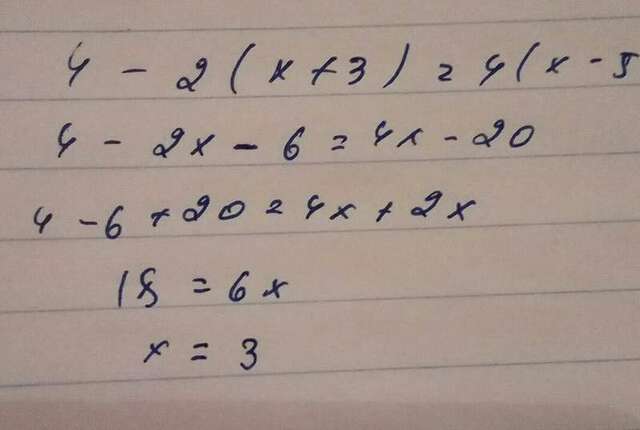 4 - 2 ( x + 3 ) = 4 ( x - 5
4 - 2x - 6 = 4x - 20
4 - 6 + 20 = 4x + 2x
18 = 6x
x = 3